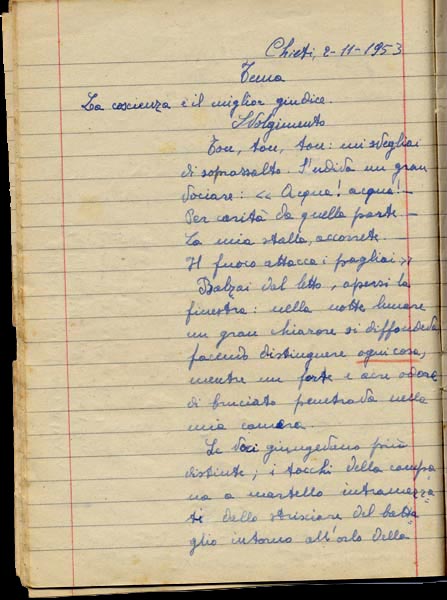 Chieti, 2-11-1953
Tema
La coscienza è il miglior giudice.
Svolgimento
Ton, ton, ton: mi svegliai
di soprassalto. S'udiva un gran
vociare: << Acqua! acqua! -
Per carità da quella parte -
La mia stalla, accorrete. -
Il fuoco attacca i pagliai >>
Balzai dal letto, apersi la
finestra: nella notte lunare
un gran chiarore si diffondeva
facendo distinguere ogni cosa,
mentre un forte e acre odore
di bruciato penetrava nella
mia camera.
Le voci giungevano più
distinte; i tocchi della campa
na a martello intramezza
ti dallo strisciare del batta
glio intorno all'orlo della